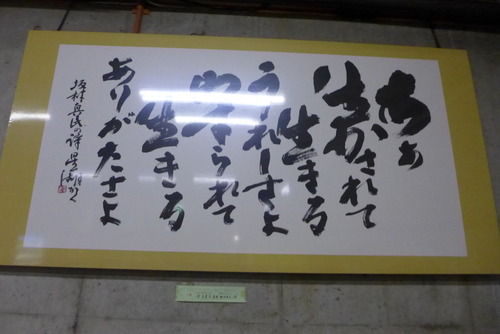 あぁ
生かされて
生きる
うれしさよ
守られて
生きる
ありがたさよ
坂村真民の詩